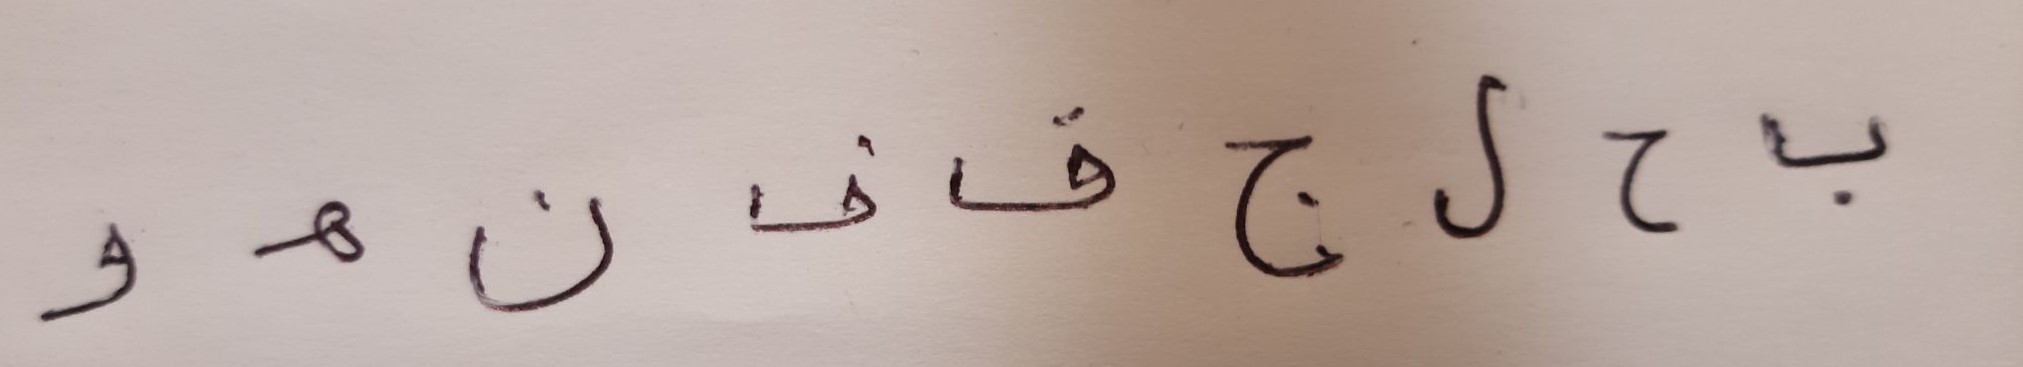 ب ح ل ج ف ف ن ه و